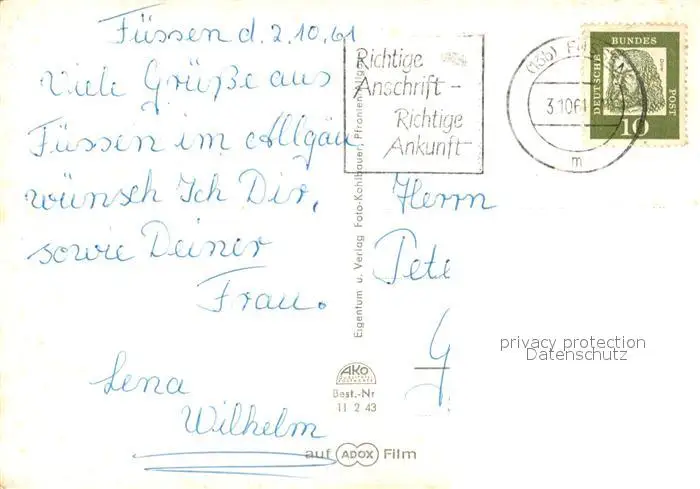 Füssen d. 2.10.61
Viele Grüße aus
Füssen im Allgäu
wünsch Ich Dir,
sowie Deiner
Frau.
Lena
Wilhelm
Richtige
Anschrift -
Richtige
Ankunft
3.10.61
m
DEUTSCHE
BUNDES
POST
10
Herrn
Eigentum u. Verlag Foto-Kohlbauer, Pfronten/Allgäu
AKO
Best.-Nr
11 2 43
auf ADOX Film
privacy protection
Datenschutz